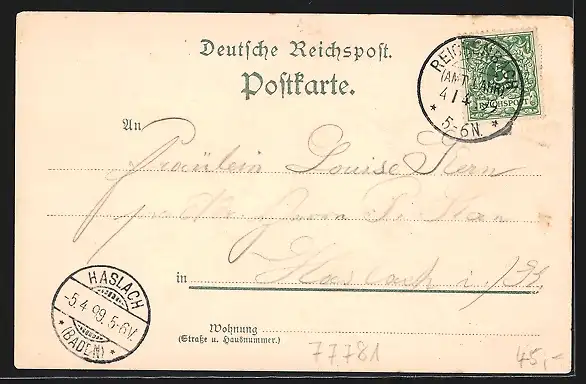 Deutsche Reichspost.
Postkarte.
REICHENBACH
(AMT LAHR)
4/4 99
* 5-6N. *
REICHSPOST
An
Fräulein Louise Kern
Haslach i/K
in
HASLACH
-5.4.99.5-6V.
* (BADEN) *
Wohnung
(Straße u. Hausnummer.)
77781
45,-